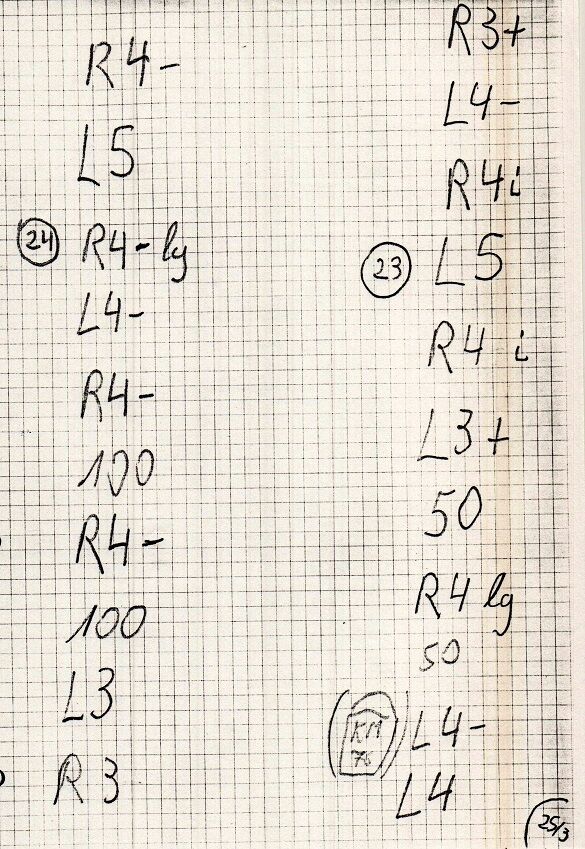 R4-
L5
24 R4- lg
L4-
R4-
100
R4-
100
L3
R3
R3+
L4-
R4i
23 L5
R4 i
L3+
50
R4 lg
50
KM 76 L4-
L4
25/3